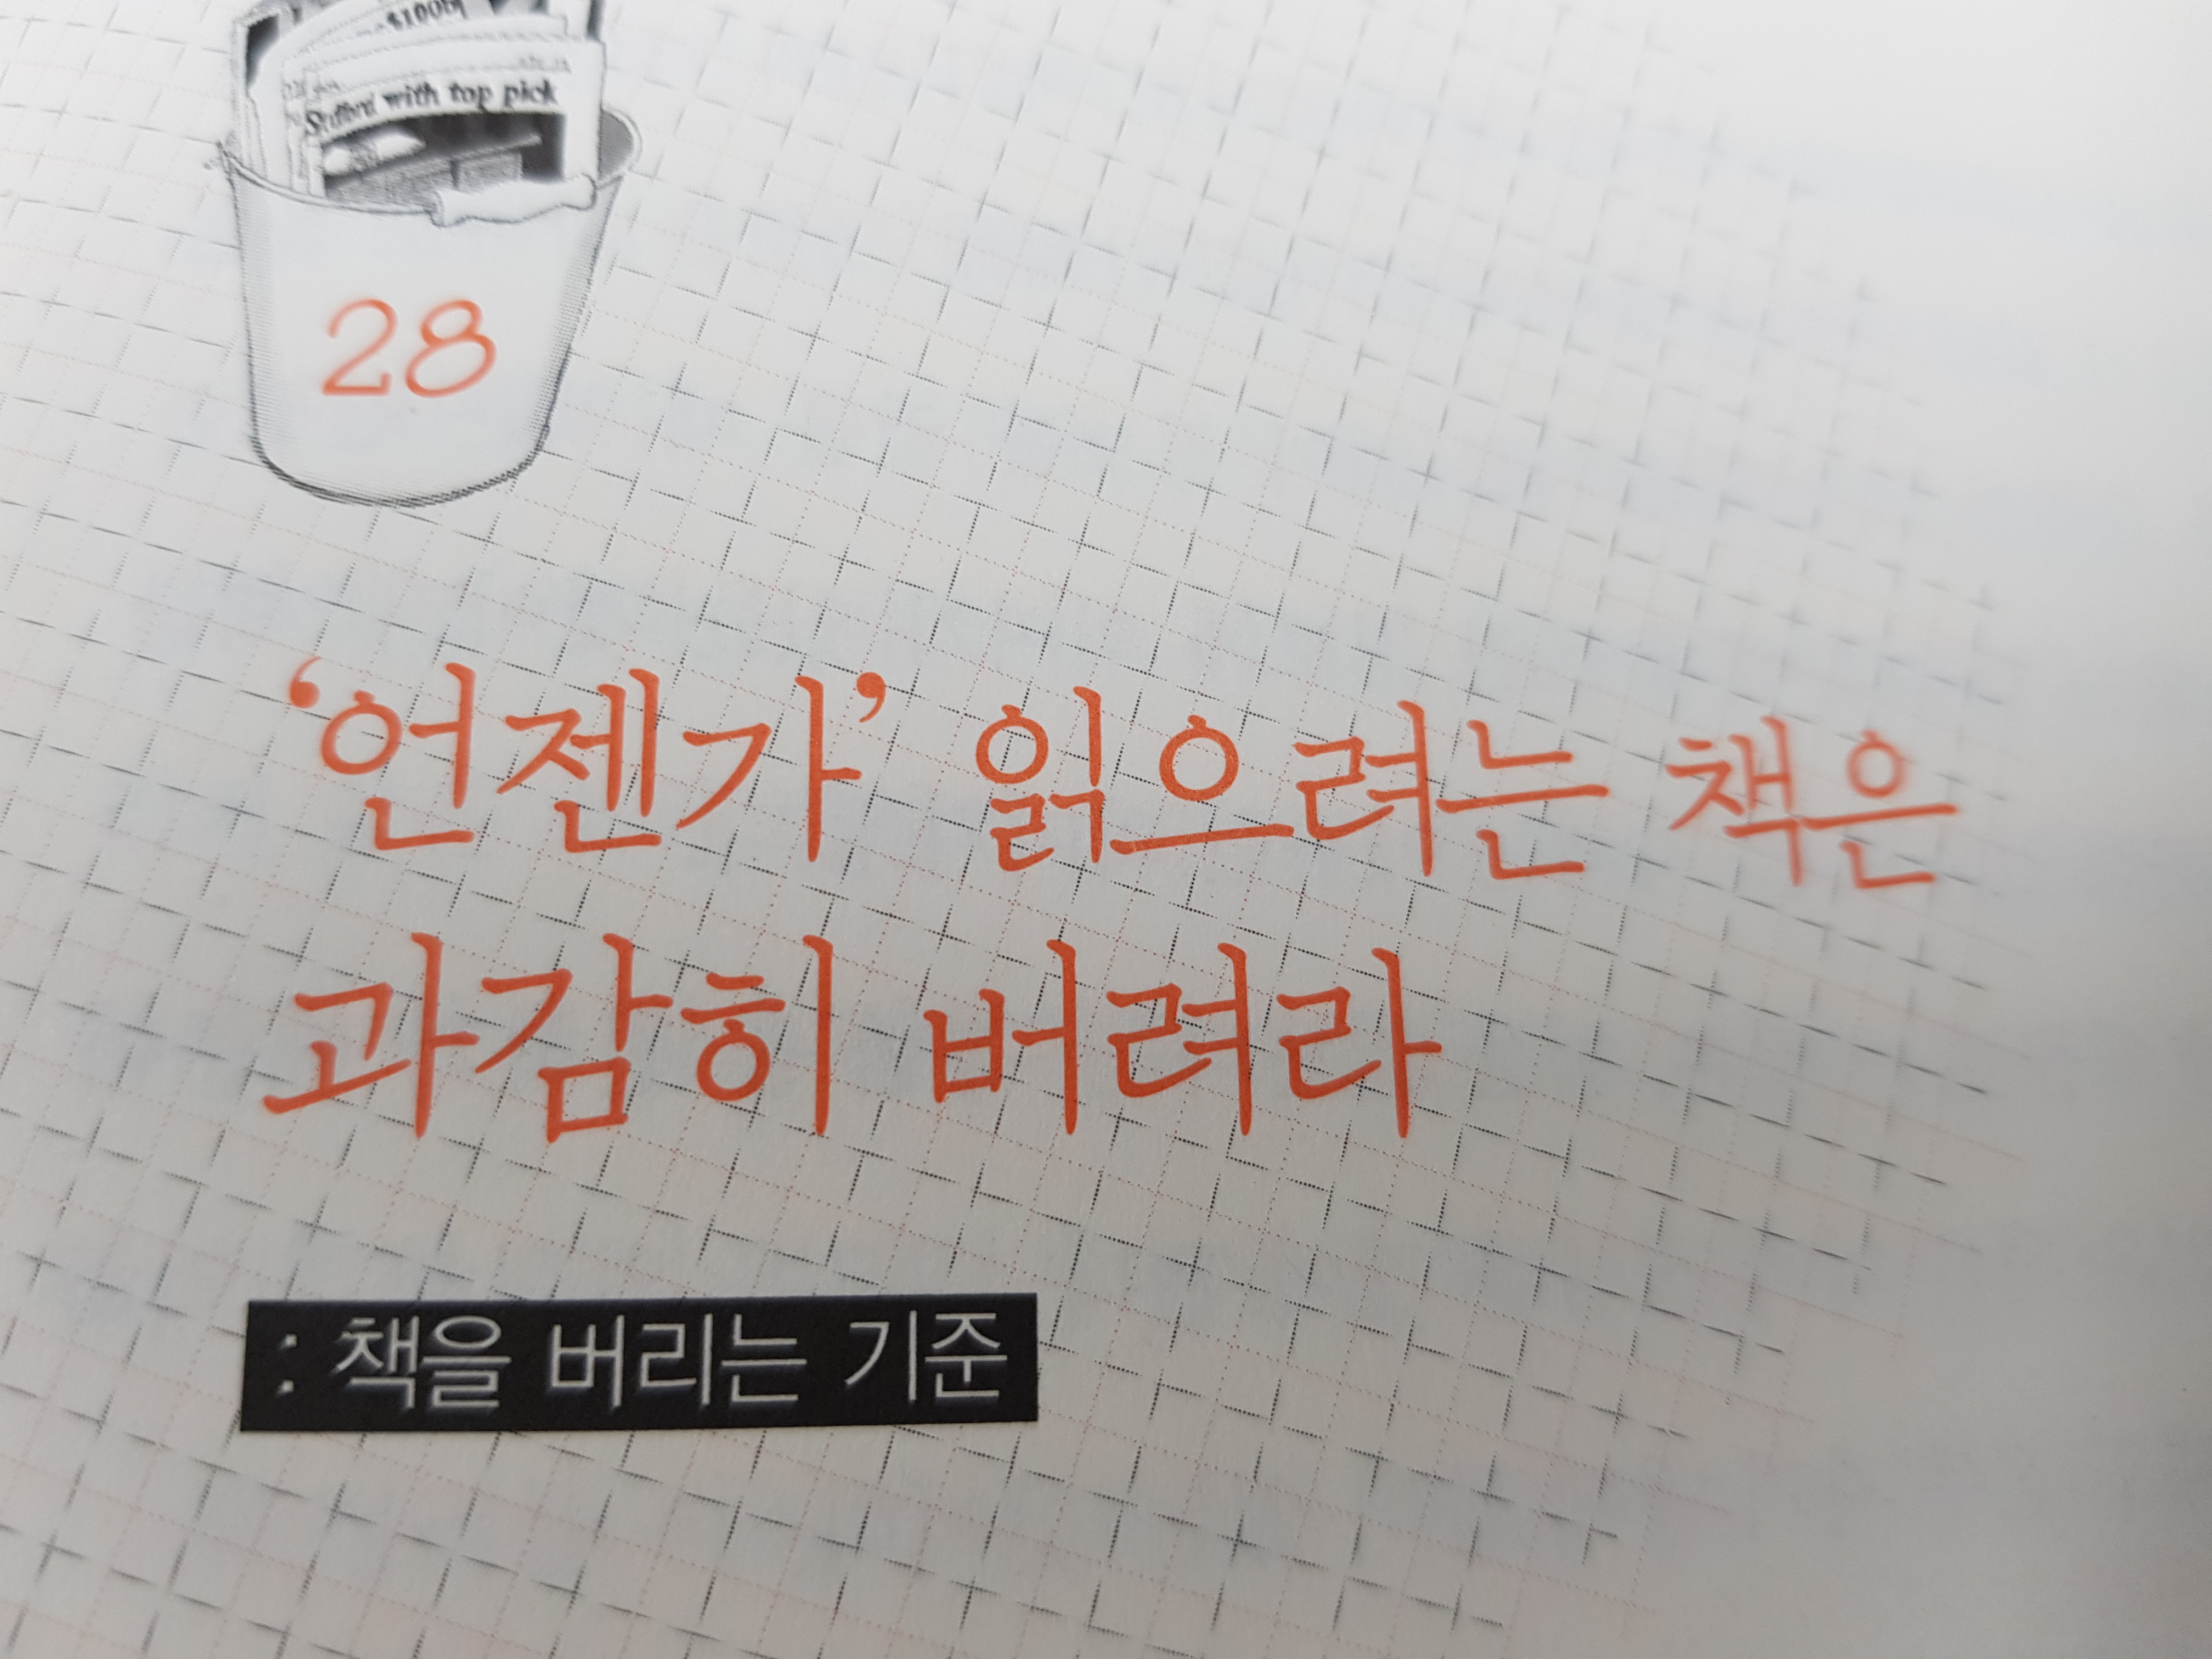 with top pick
28
‘언젠가’ 읽으려는 책은
과감히 버려라
: 책을 버리는 기준